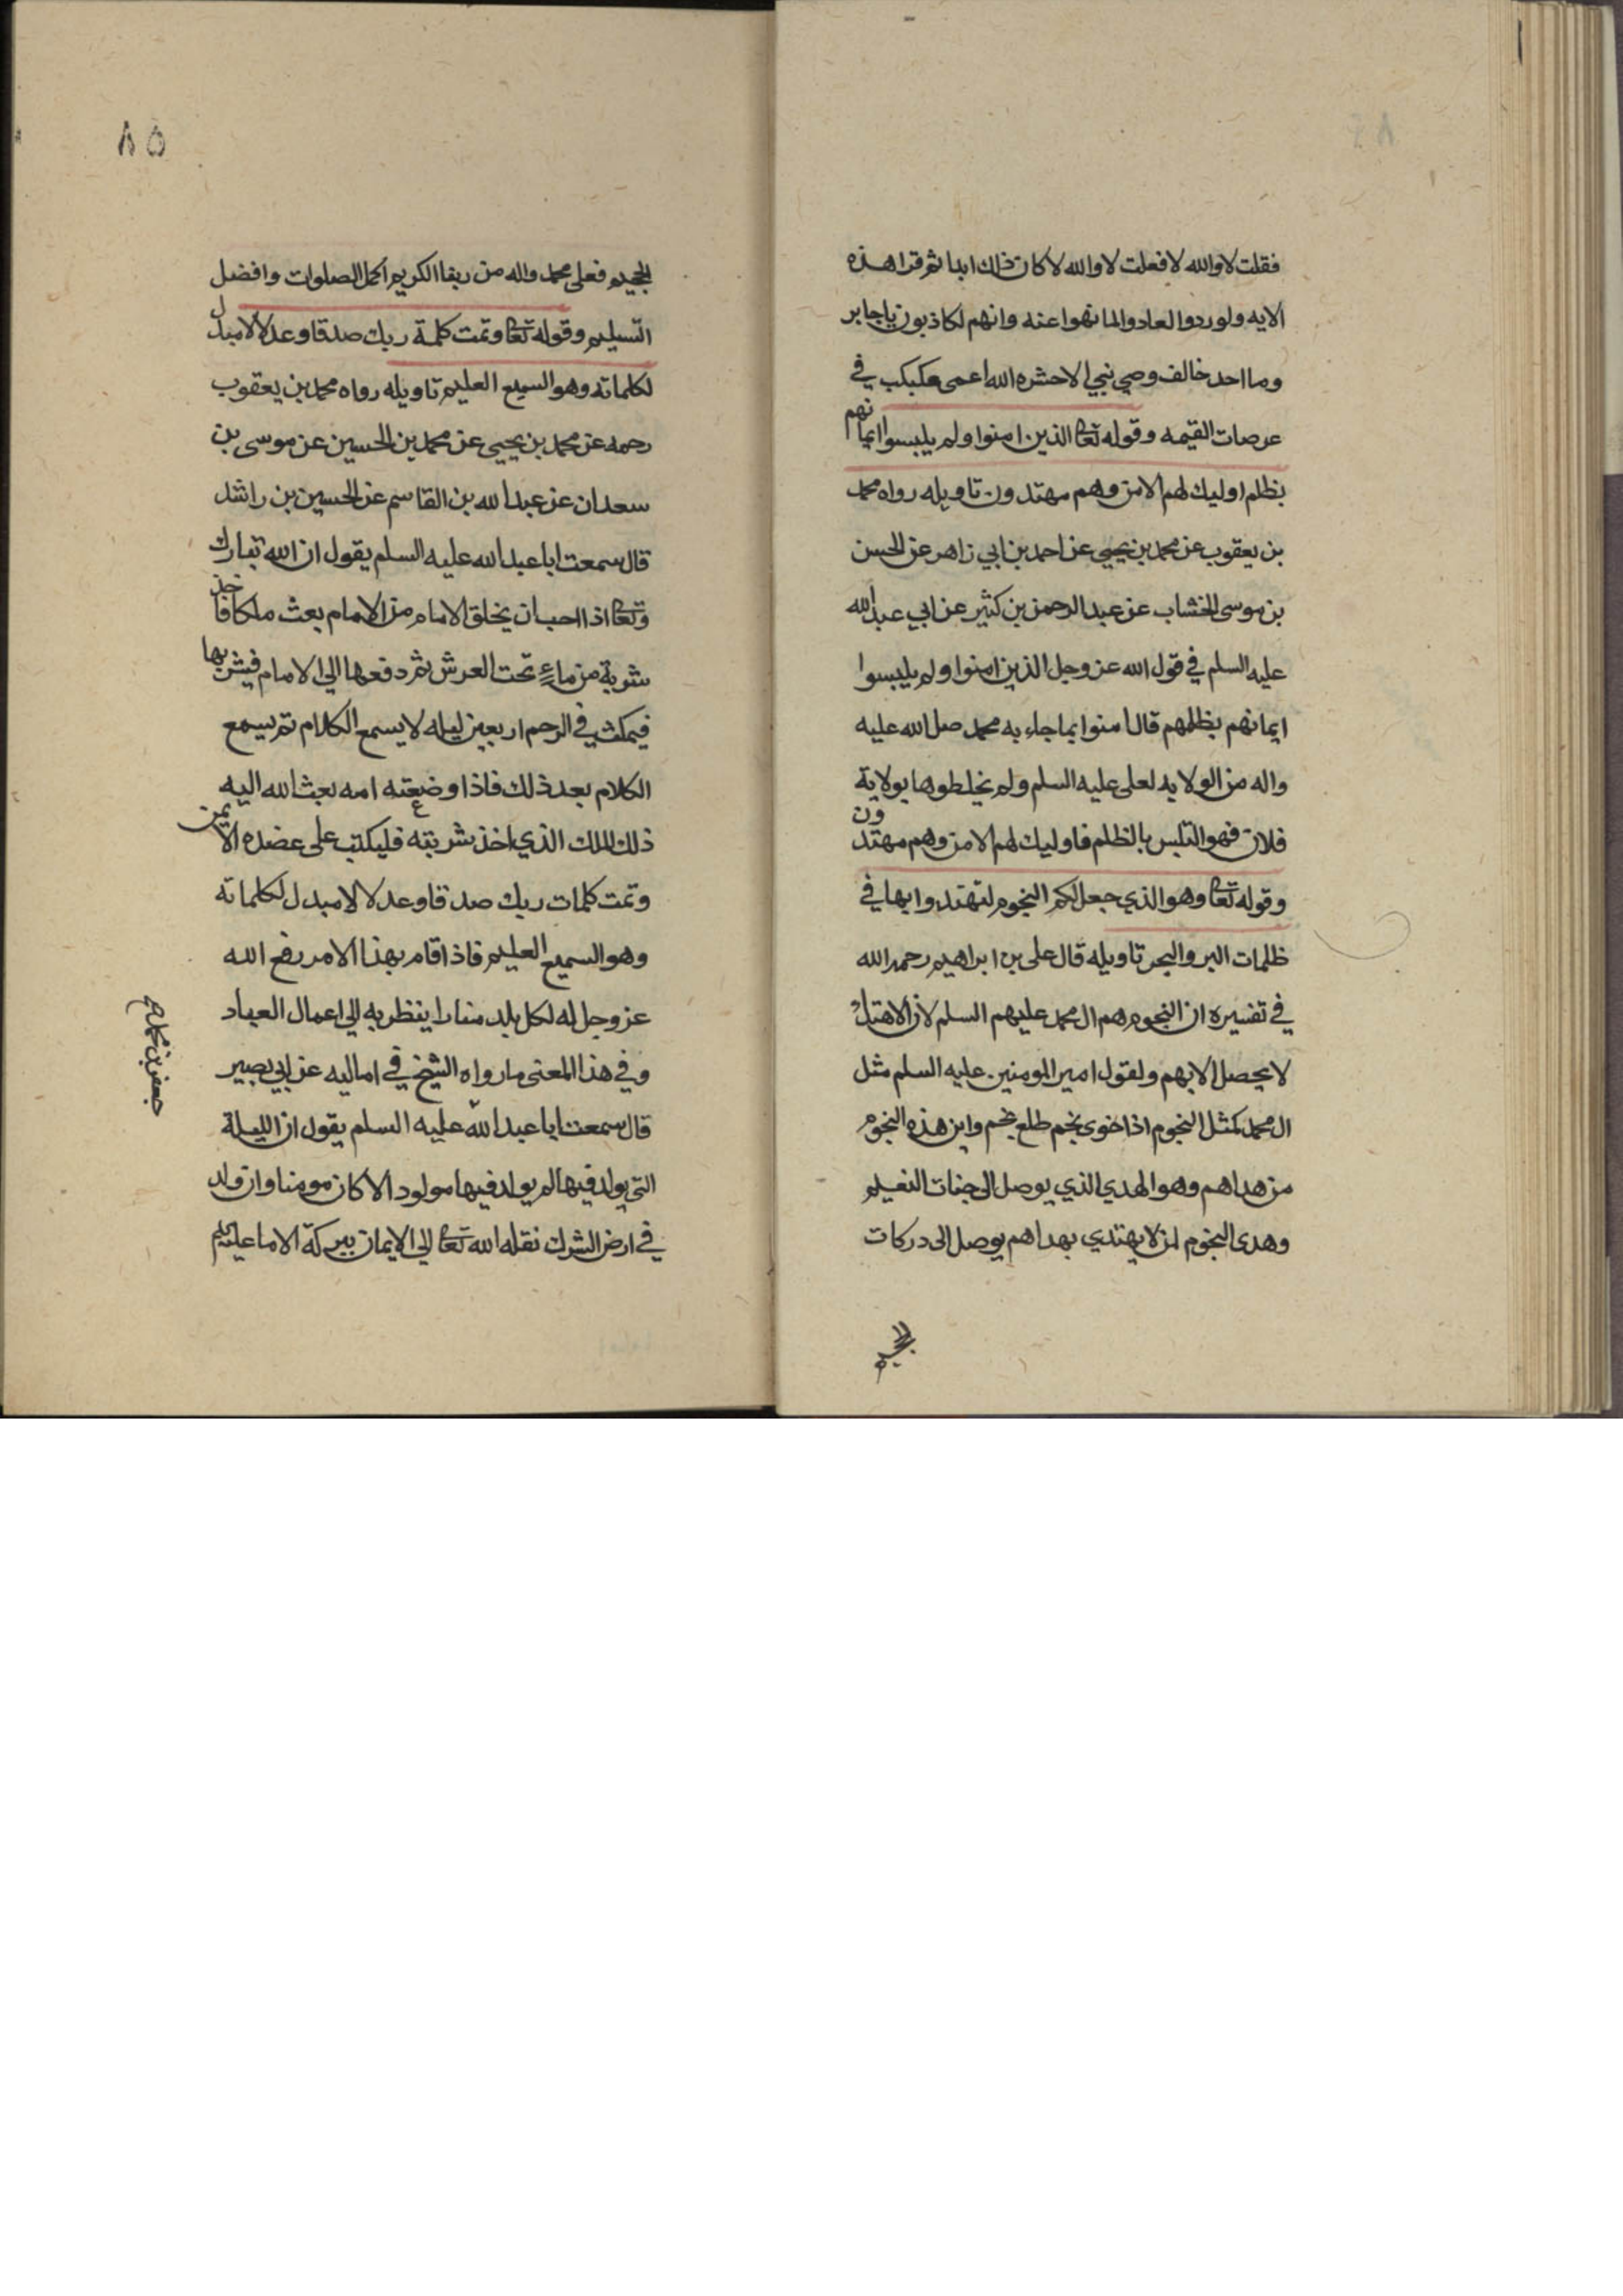 فقلت لا والله لا فعلت لا والله لا كان ذلك ابدا ثم قرا هذه
الايه ولو ردوا لعادوا لما نهوا عنه وانهم لكاذبون يا جابر
وما احد خالف وصي نبي الا حشره الله اعمى يتكبكب في
عرصات القيمه وقوله تعا الذين امنوا ولم يلبسوا ايمانهم
بظلم اوليك لهم الامن وهم مهتدون تاويله رواه محمد
بن يعقوب عن محمد بن يحيى عن احمد بن ابي زاهر عن الحسن
بن موسى الخشاب عن عبد الرحمن بن كثير عن ابي عبد الله
عليه السلم في قول الله عز وجل الذين امنوا ولم يلبسوا
ايمانهم بظلمهم قال امنوا بما جاء به محمد صلى الله عليه
واله من الولايه لعلى عليه السلم ولم يخلطوها بولاية
فلان فهو التلبس بالظلم فاوليك لهم الامن وهم مهتدون
وقوله تعا وهو الذي جعل لكم النجوم لتهتدوا بها في
ظلمات البر والبحر تاويله قال على بن ابراهيم رحمه الله
في تفسيره ان النجوم هم ال محمد عليهم السلم لان الاهتداء
لا يحصل الا بهم ولقول امير المومنين عليه السلم مثل
ال محمد كمثل النجوم اذا خوى نجم طلع نجم واين هذه النجوم
من هداهم وهو الهدي الذي يوصل الى جنات النعيم
وهدى النجوم لمن لا يهتدي بهداهم يوصل الى دركات
الجحيم
٨٥
الجحيم فعلى محمد واله من ربنا الكريم اكمل الصلوات وافضل
التسليم وقوله تعا وتمت كلمة ربك صدقا وعدلا لا مبدل
لكلماته وهو السميع العليم تاويله رواه محمد بن يعقوب
رحمه عن محمد بن يحيى عن محمد بن الحسين عن موسى بن
سعدان عن عبد الله بن القاسم عن الحسين بن راشد
قال سمعت ابا عبد الله عليه السلم يقول ان الله تبارك
وتعا اذا احب ان يخلق الامام من الامام بعث ملكا فاخذ
شربة من ماء تحت العرش ثم دفعها الى الامام فيشربها
فيمكث في الرحم اربعين ليله لا يسمع الكلام ثم يسمع
الكلام بعد ذلك فاذا وضعته امه بعث الله اليه
ذلك الملك الذي اخذ شربته فليكتب على عضده الايمن
وتمت كلمات ربك صدقا وعدلا لا مبدل لكلماته
وهو السميع العليم فاذا قام بهذا الامر رفع الله
عز وجل له لكل بلد منارا ينظر به الى اعمال العباد
وفي هذا المعنى ما رواه الشيخ في اماليه عن ابي بصير
قال سمعت ابا عبد الله عليه السلم يقول ان الليلة
التي يولد فيها لم يولد فيها مولود الا كان مومنا وان ولد
في ارض الشرك نقله الله تعا الى الايمان ببركة الامام عليه السلم
جعفر بن محمد ع